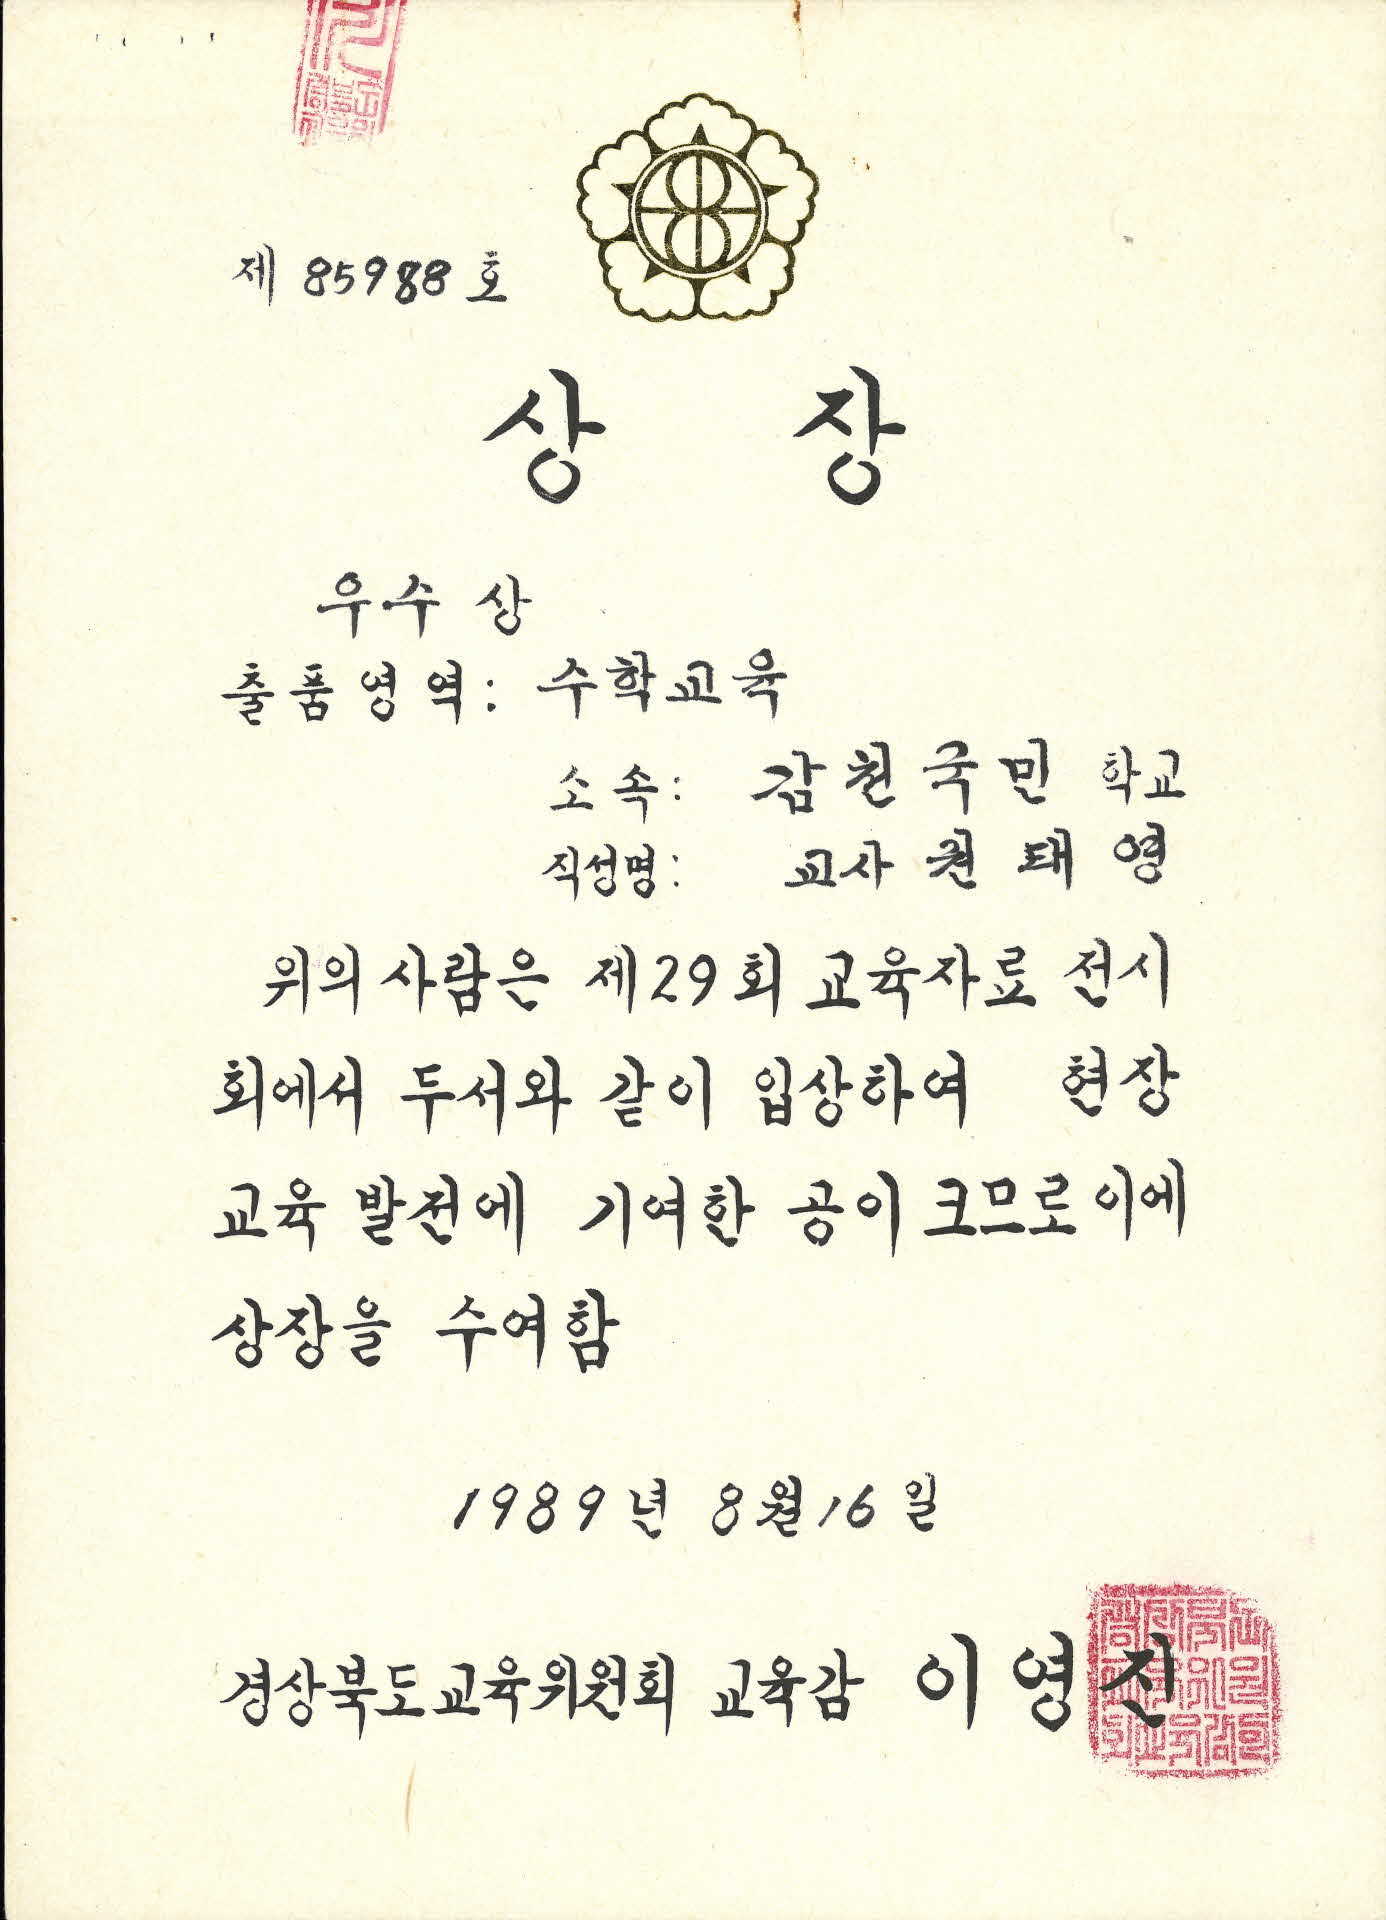 제 85988 호
상 장
우수 상
출품영역: 수학교육
소속: 감천국민 학교
직성명: 교사 권태영
위의 사람은 제29회 교육자료 전시
회에서 두서와 같이 입상하여 현장
교육 발전에 기여한 공이 크므로 이에
상장을 수여함
1989년 8월 16일
경상북도교육위원회 교육감 이영진